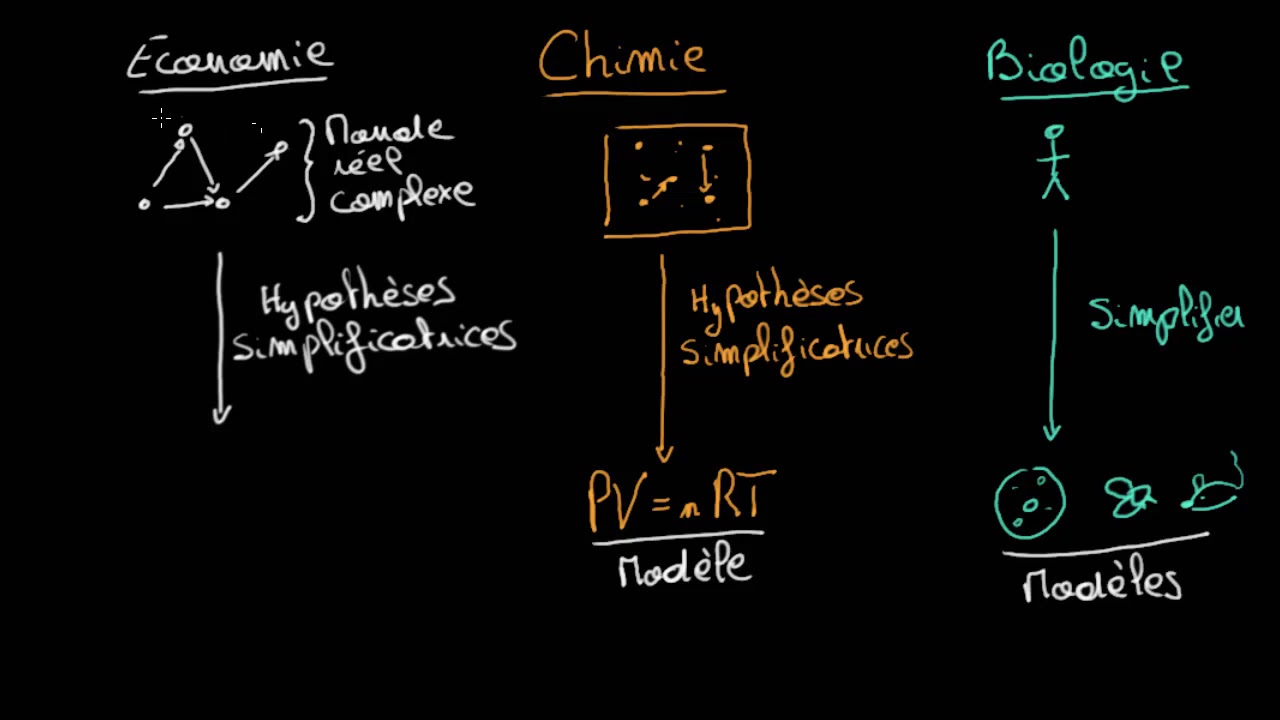 Economie
Monde
réel
complexe
Hypothèses
simplificatrices
Chimie
Hypothèses
simplificatrices
PV = nRT
Modèle
Biologie
Simplifier
Modèles